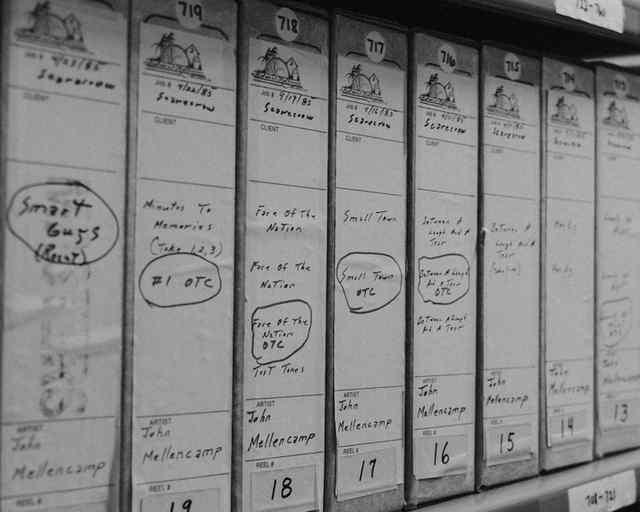 4/23/85
Scarecrow
CLIENT
Smart
Guys
(Reset)
ARTIST
John
Mellencamp
REEL #
719
4/22/85
Scarecrow
CLIENT
Minutes To
Memories
(Take 1,2,3)
#1 OTC
ARTIST
John
Mellencamp
REEL #
19
718
Scarecrow
CLIENT
Face Of The
Nation
Face Of The
Nation
Face Of The
Nation
OTC
Test Tones
ARTIST
John
Mellencamp
REEL #
18
717
Scarecrow
CLIENT
Small Town
Small Town
OTC
ARTIST
John
Mellencamp
REEL #
17
716
Scarecrow
CLIENT
Between A
Laugh And A
Tear
Between A Laugh
And A Tear
OTC
Between A Laugh
And A Tear
ARTIST
John
Mellencamp
REEL #
16
715
Scarecrow
Between A
Laugh And A
Tear
John
Mellencamp
15
714
John
Mellencamp
14
13